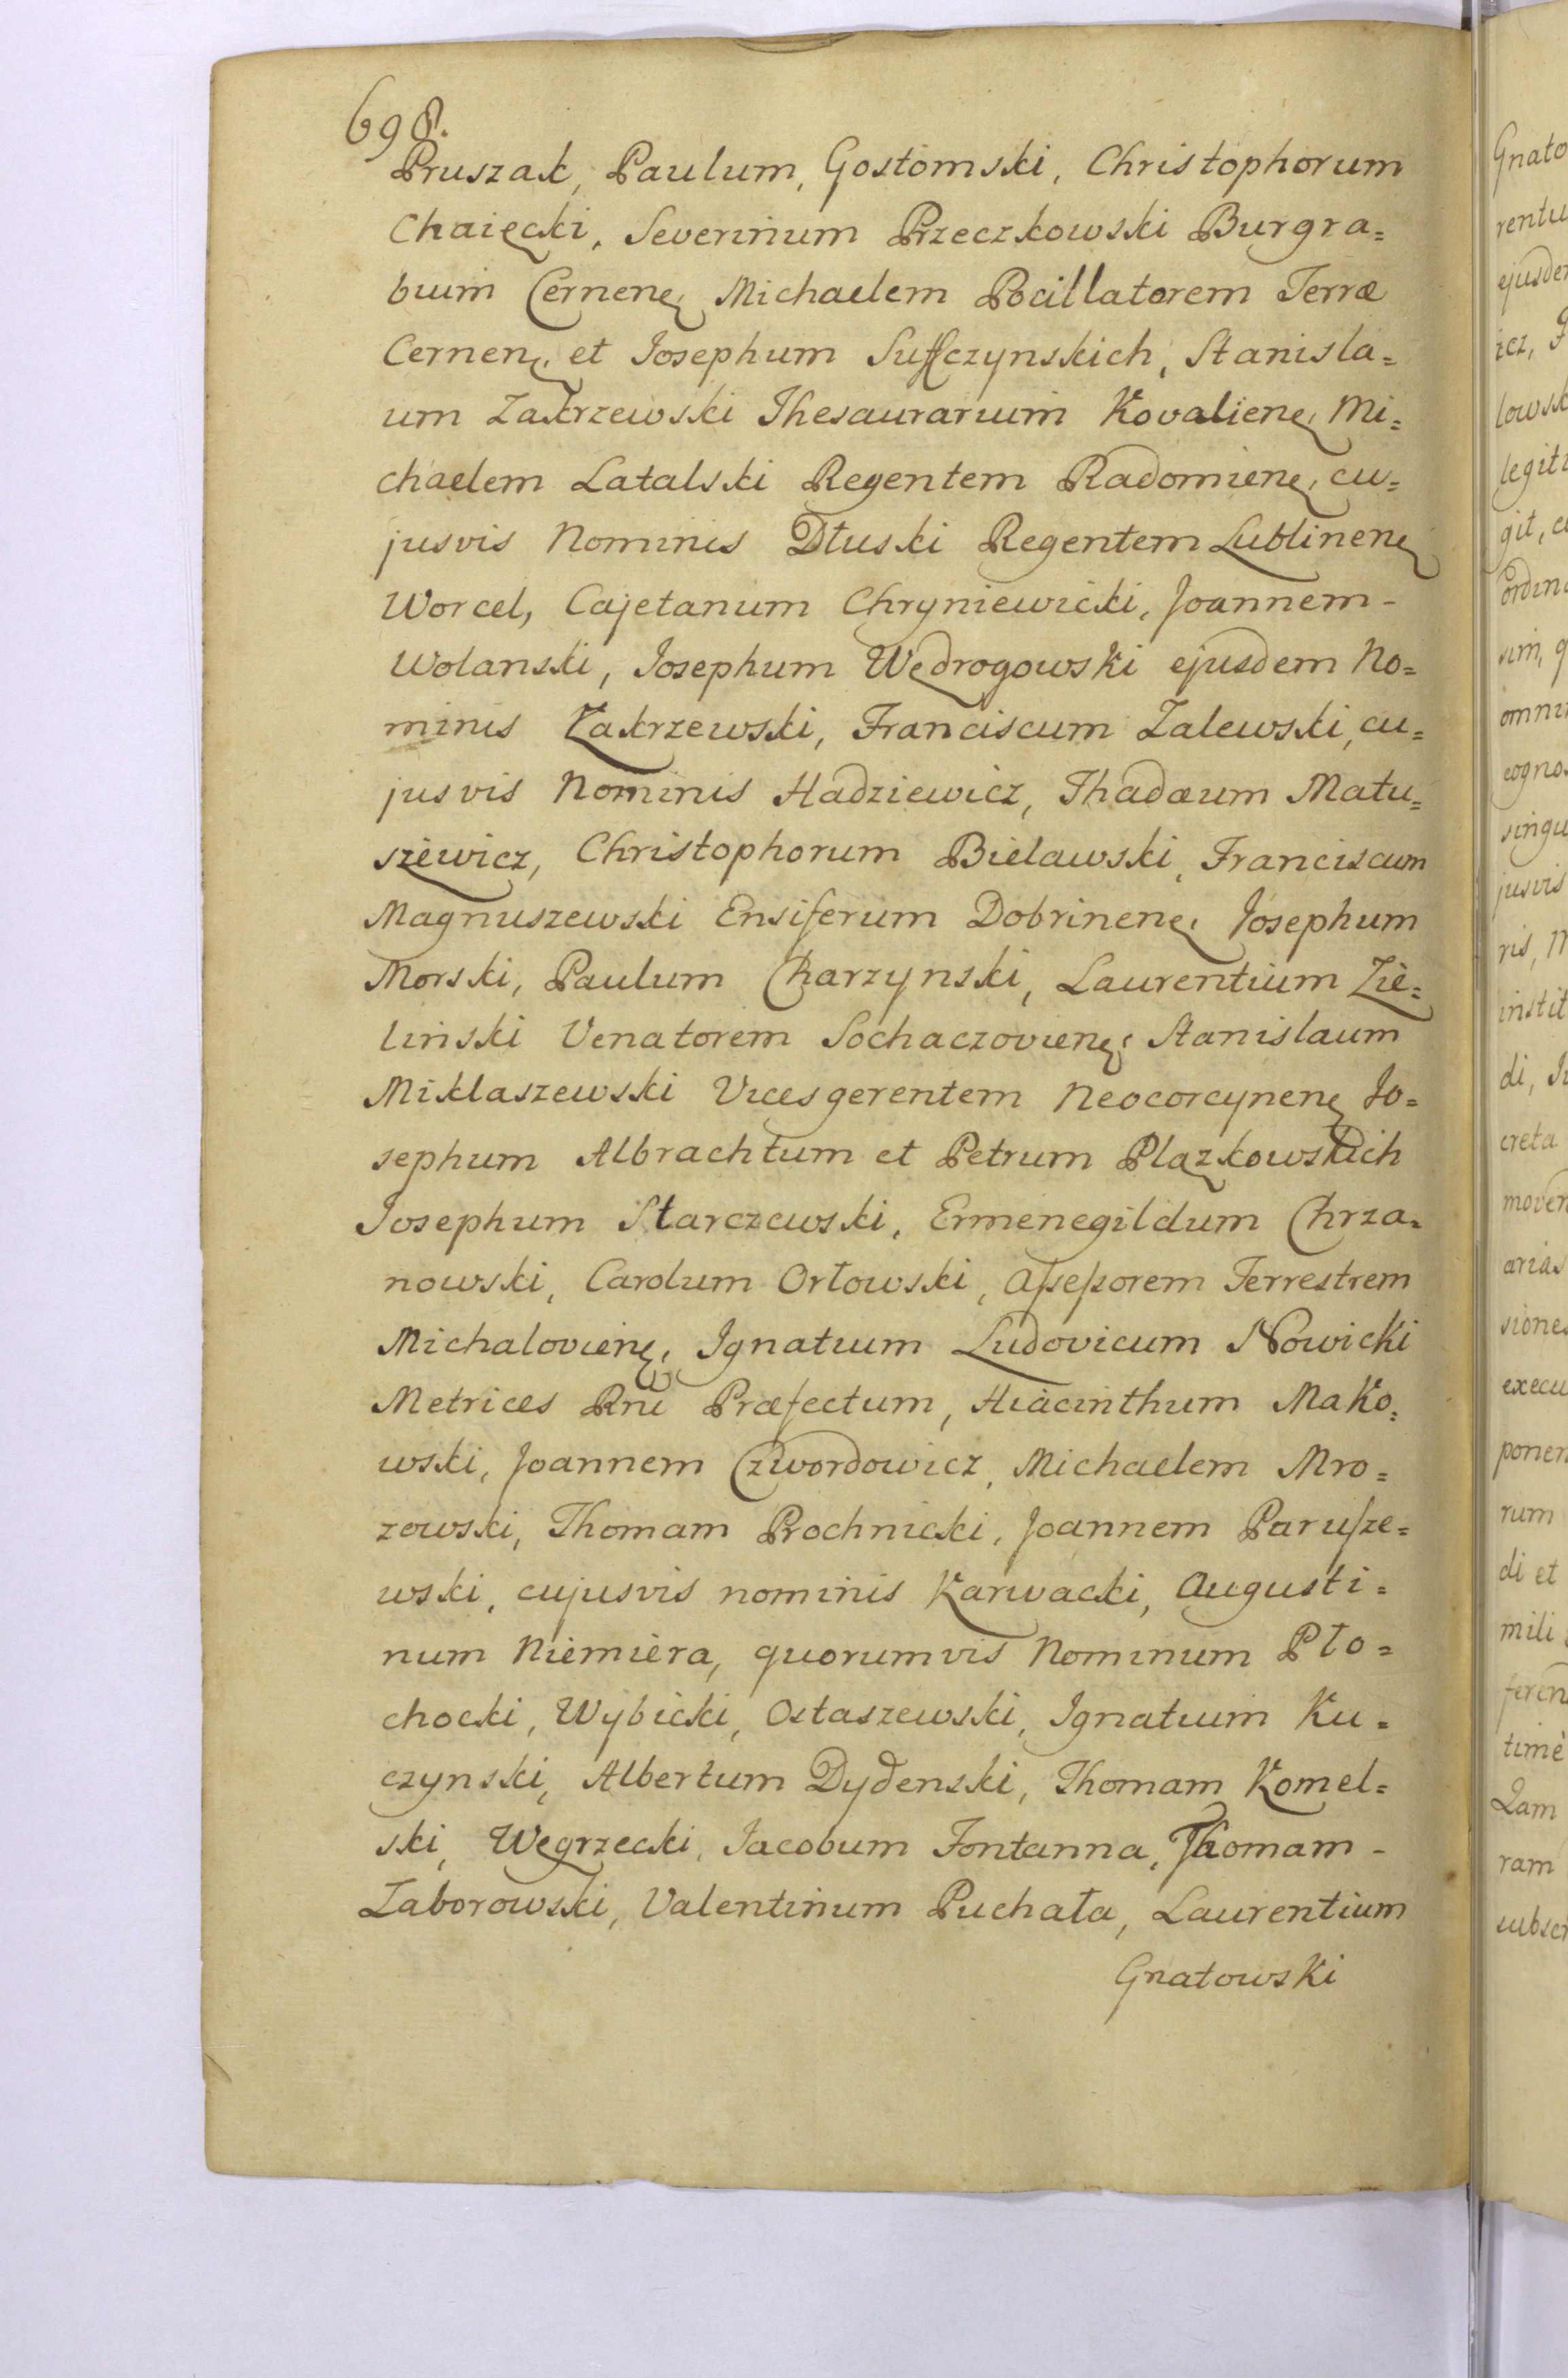 698.
Pruszak, Paulum, Gostomski, Christophorum
Chaięcki, Severinum Przeczkowski Burgra=
bium Cernenę, Michaelem Pocillatorem Terræ
Cernenę, et Josephum Suffczynskich, Stanisla=
um Zakrzewski Thesaurarium Kovalienę, Mi=
chaelem Latalski Regentem Radomienę, cu=
jusvis Nominis Dłuski Regentem Lublinenę
Worcel, Cajetanum Chryniewicki, Joannem-
Wolanski, Josephum Wędrogowski ejusdem No=
minis Zakrzewski, Franciscum Zalewski, cu=
jusvis Nominis Hadziewicz, Thadæum Matu=
szewicz, Christophorum Bielawski, Franciscum
Magnuszewski Ensiferum Dobrinenę, Josephum
Morski, Paulum Charzynski, Laurentium Zie=
linski Venatorem Sochaczovienę, Stanislaum
Miklaszewski Vicesgerentem Neocorcynenę Jo=
sephum Albrachtum et Petrum Plązkowskich
Josephum Starczewski, Ermenegildum Chrza=
nowski, Carolum Orłowski, Aſseſsorem Terrestrem
Michalovienę, Ignatium Ludovicum Nowicki
Metrices Rni Præfectum, Hiacinthum Mako=
wski, Joannem Czwordowicz, Michaelem Mro=
zowski, Thomam Prochnicki, Joannem Paruſze=
wski, cujusvis nominis Karwacki, Augusti=
num Niemiera, quorumvis Nominum Pło=
chocki, Wybicki, Ostaszewski, Ignatium Ku=
czynski, Albertum Dydenski, Thomam Komel=
ski, Węgrzecki, Jacobum Fontanna, Thomam-
Zaborowski, Valentinum Puchała, Laurentium
Gnatowski